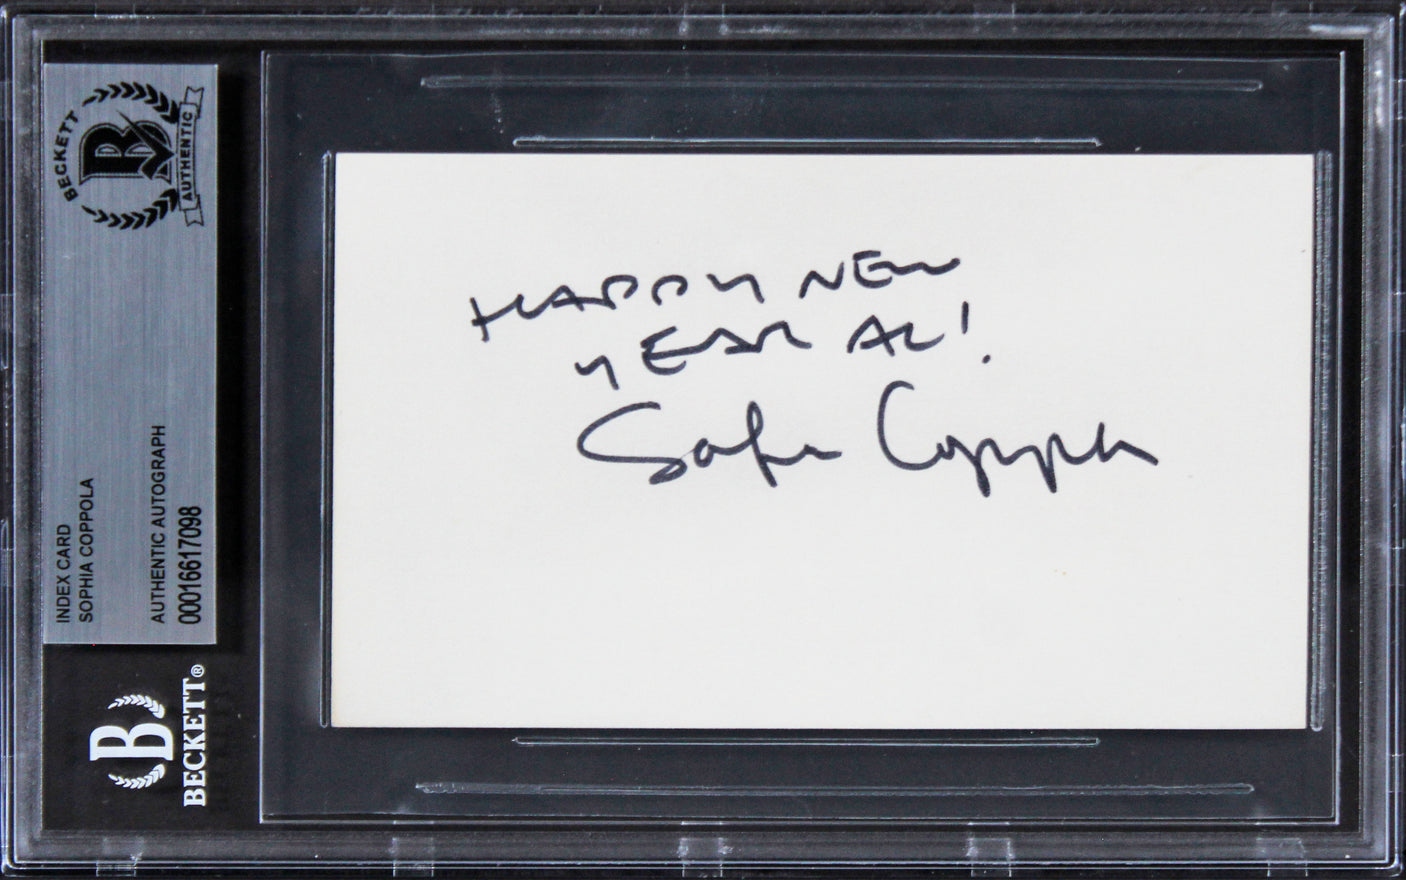 BECKETT
B
AUTHENTIC
INDEX CARD
SOPHIA COPPOLA
AUTHENTIC AUTOGRAPH
00016617098
B
BECKETT®
HAPPY NEW
YEAR AL!
Sofia Coppola